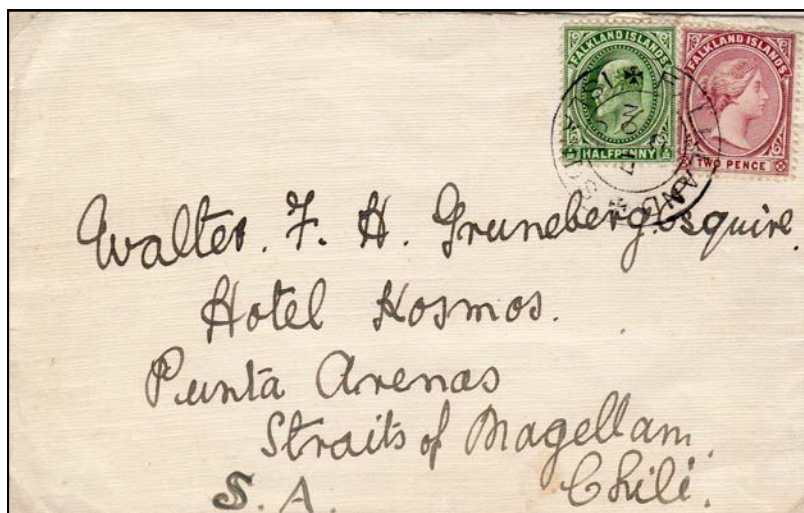 FALKLAND ISLANDS
HALFPENNY
FALKLAND ISLANDS
TWO PENCE
Walter. F. H. Gruneberg. Esquire.
Hotel Kosmos.
Punta Arenas
Straits of Magellam.
S. A. Chili.